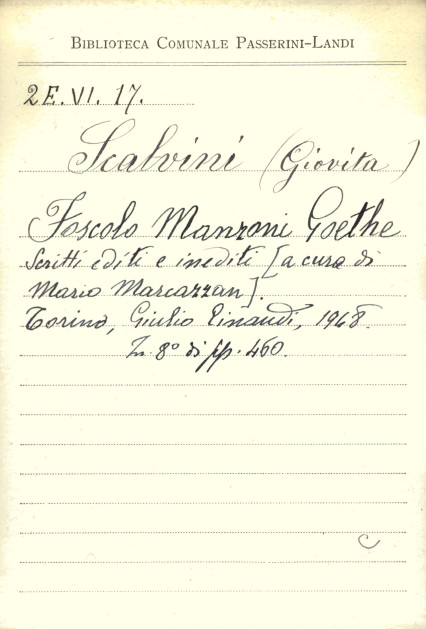 BIBLIOTECA COMUNALE PASSERINI-LANDI
2E. VI. 17.
Scalvini (Giovita)
Foscolo Manzoni Goethe
Scritti editi e inediti [a cura di
Mario Marcazzan].
Torino, Giulio Einaudi, 1948.
In 8° di pp. 460.
C